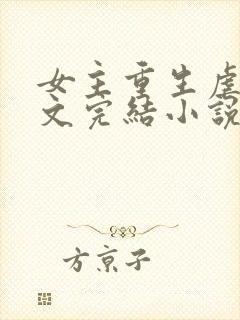 女主重生虐
文完结小说
方京子